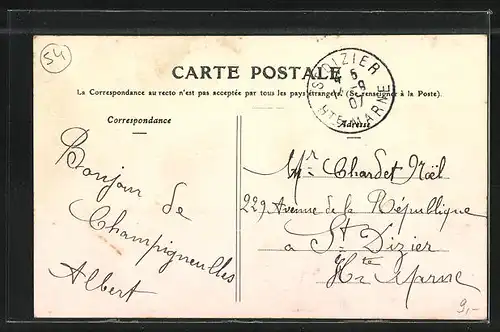 54
CARTE POSTALE
La Correspondance au recto n'est pas acceptée par tous les pays étrangers. (Se renseigner à la Poste).
ST DIZIER
5
-9
07
HTE MARNE
Correspondance
Adresse
Bonjour de
Champigneulles
Albert
Mr Chardet Noël
229 Avenue de la République
a St Dizier
Hte Marne
9,-